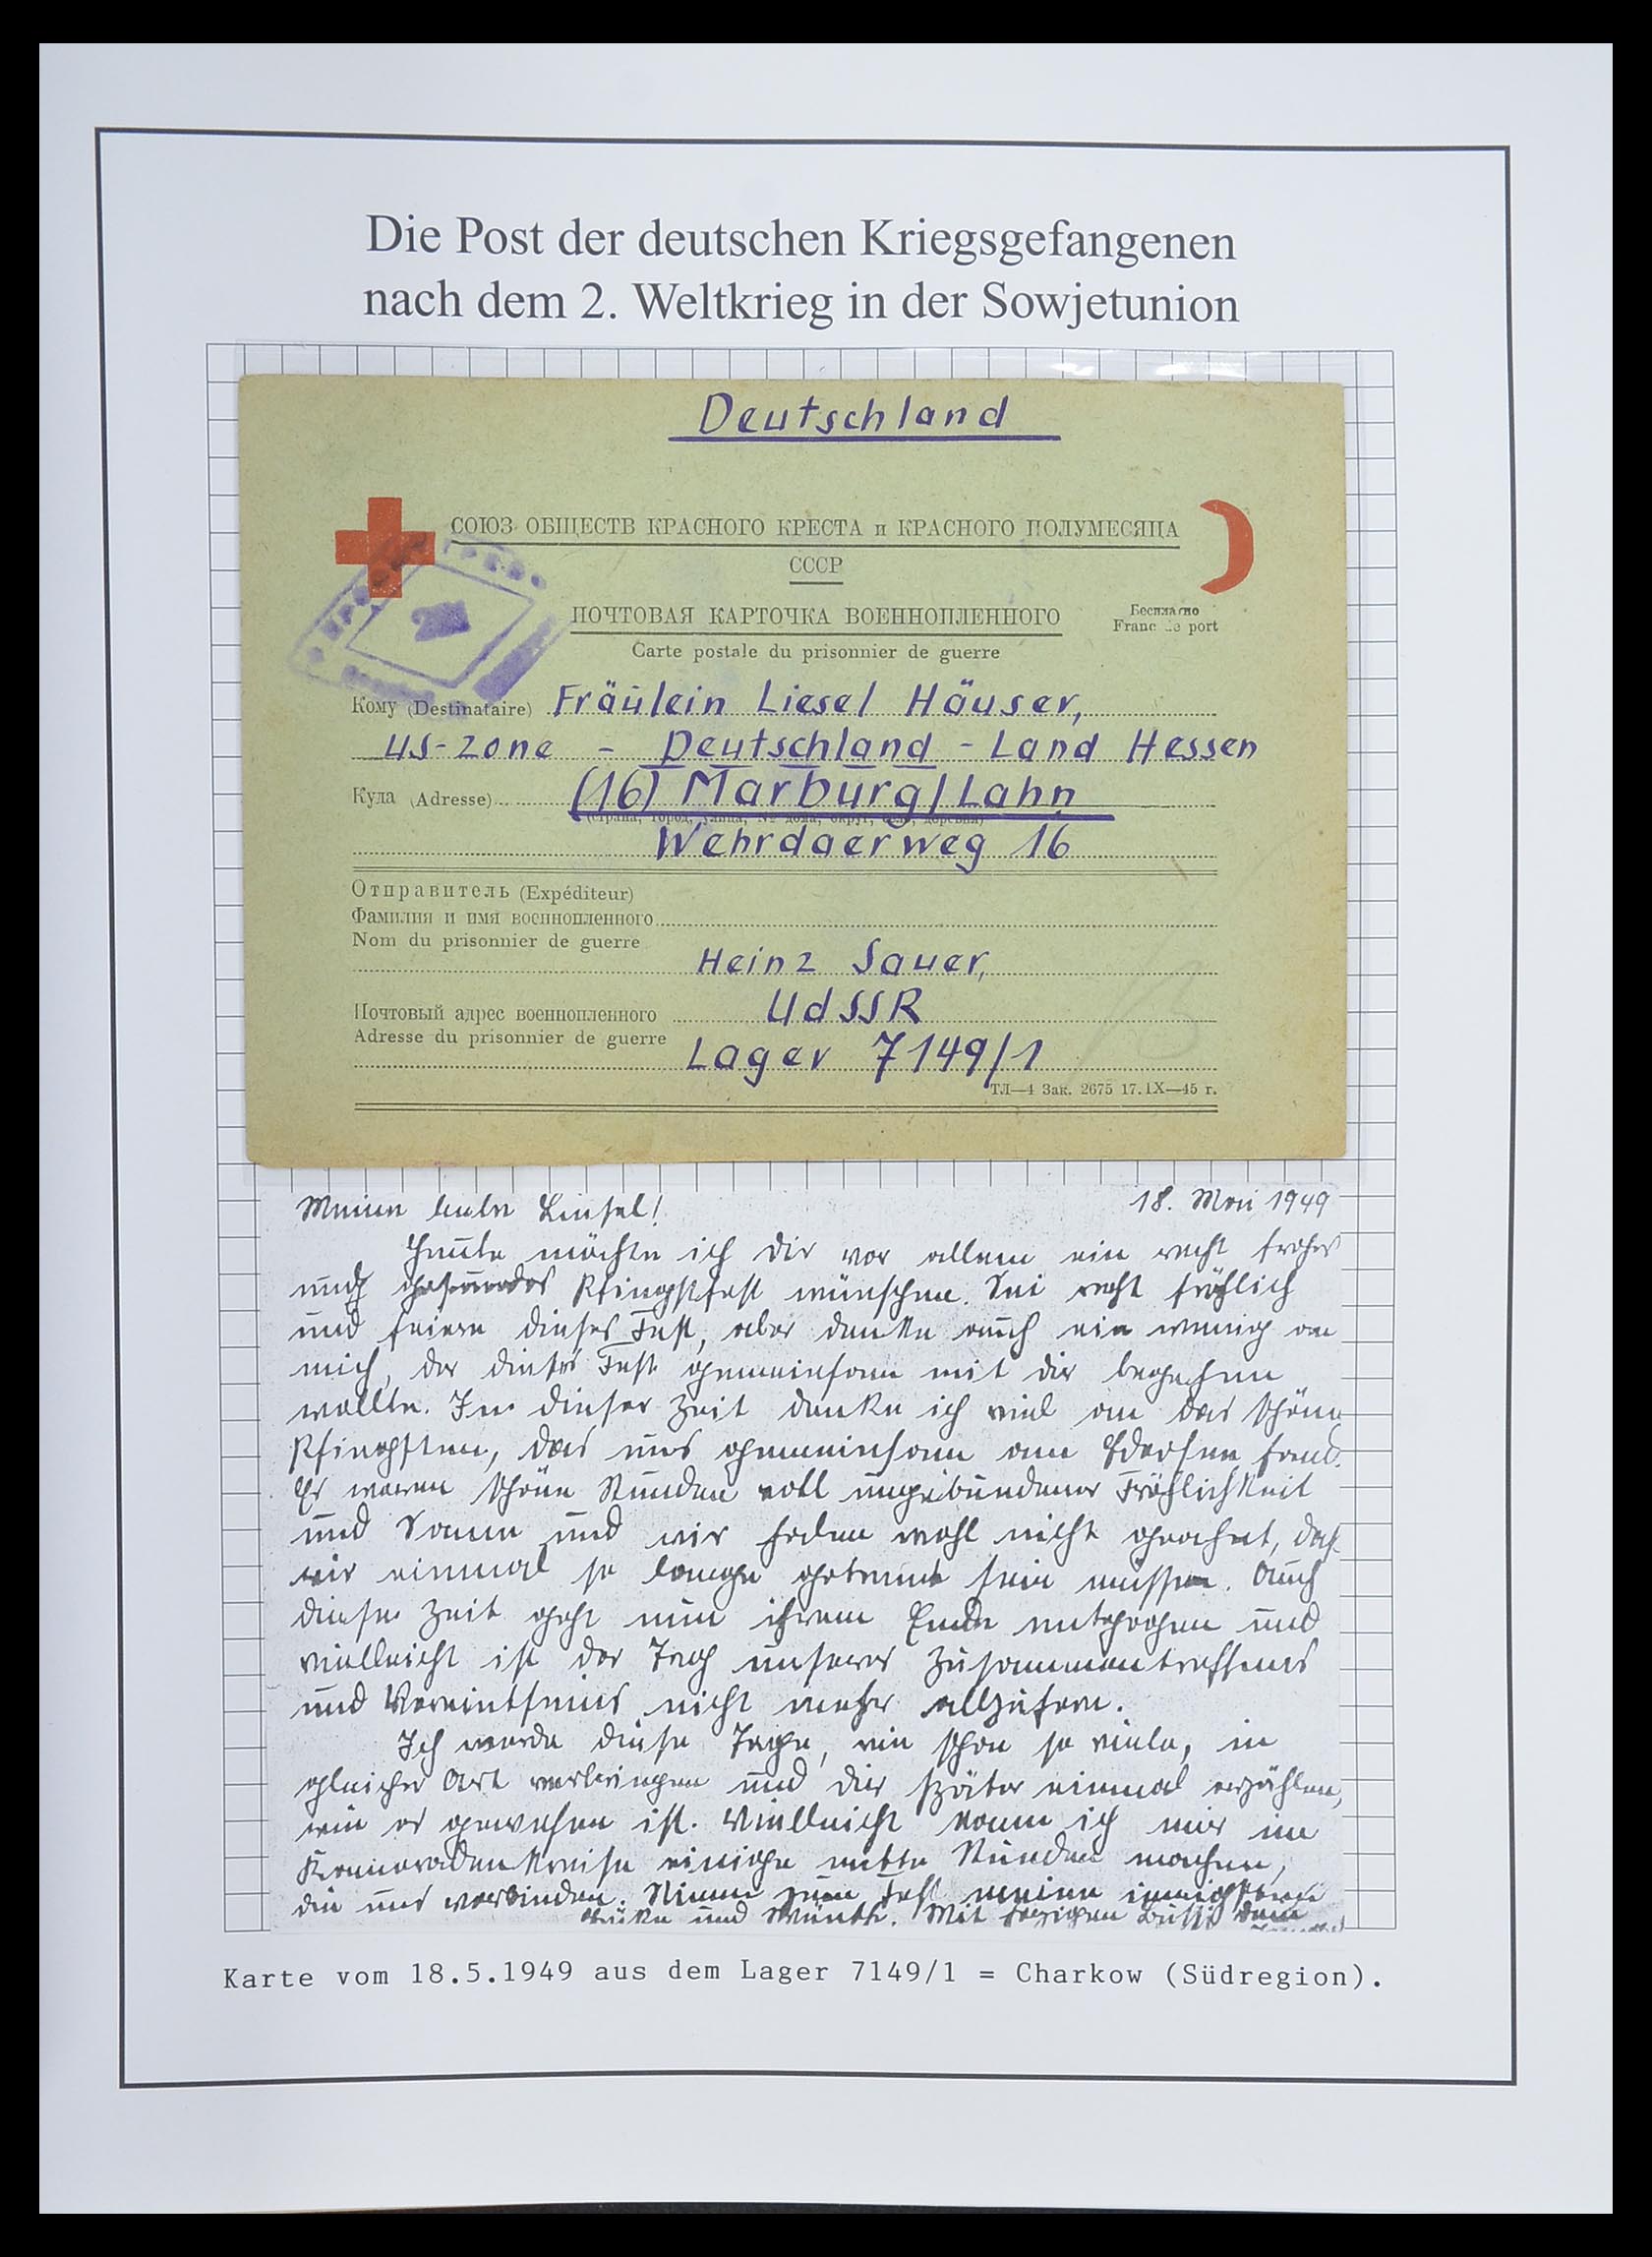 Die Post der deutschen Kriegsgefangenen
nach dem 2. Weltkrieg in der Sowjetunion
Deutschland
СОЮЗ ОБЩЕСТВ КРАСНОГО КРЕСТА и КРАСНОГО ПОЛУМЕСЯЦА
СССР
ПОЧТОВАЯ КАРТОЧКА ВОЕННОПЛЕННОГО
Бесплатно
Carte postale du prisonnier de guerre
Franc de port
Кому (Destinataire) Fräulein Liesel Häuser,
US-Zone - Deutschland - Land Hessen
Куда (Adresse) (16) Marburg/Lahn
(страна, город, улица, № дома, округ, село, деревня)
Wehrdaerweg 16
Отправитель (Expéditeur)
Фамилия и имя военнопленного
Nom du prisonnier de guerre
Heinz Sauer,
Почтовый адрес военнопленного UdSSR
Adresse du prisonnier de guerre Lager 7149/1
ТЛ—4 Зак. 2675 17.IX—45 г.
Meine liebe Liesel! 18. Mai 1949
Heute möchte ich dir vor allem ein recht frohes
und gesundes Pfingstfest wünschen. Sei recht fröhlich
und feiere dieses Fest, aber denke auch ein wenig an
mich, der dieses Fest gemeinsam mit dir begehen
wollte. In dieser Zeit denke ich viel an das schöne
Pfingsten, das uns gemeinsam am Edersee fand.
Es waren schöne Stunden voll ungebundener Fröhlichkeit
und Sonne und wir haben wohl nicht geahnt, daß
wir einmal so lange getrennt sein müssen. Auch
diese Zeit geht nun ihrem Ende entgegen und
vielleicht ist der Tag unseres Zusammentreffens
und Vereintseins nicht mehr allzufern.
Ich werde diese Tage, wie schon so viele, in
gleicher Art verbringen und dir später einmal erzählen,
wie es gewesen ist. Vielleicht kann ich mir im
Kameradenkreise einige nette Stunden machen,
die uns verbinden. Nimm zum Fest meine innigsten
Grüße und Wünsche. Mit herzigem Bussi dein
Karte vom 18.5.1949 aus dem Lager 7149/1 = Charkow (Südregion).